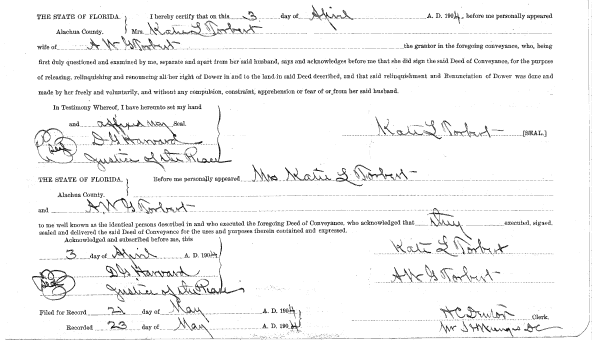 THE STATE OF FLORIDA. I hereby certify that on this 3 day of April A. D. 1904, before me personally appeared
Alachua County. Mrs. Katie L Torbert
wife of A W G Torbert the grantor in the foregoing conveyance, who, being
first duly questioned and examined by me, separate and apart from her said husband, says and acknowledges before me that she did sign the said Deed of Conveyance, for the purpose
of releasing, relinquishing and renouncing all her right of Dower in and to the land in said Deed described, and that said relinquishment and Renunciation of Dower was done and
made by her freely and voluntarily, and without any compulsion, constraint, apprehension or fear of or from her said husband.
In Testimony Whereof, I have hereunto set my hand
and affixed my Seal. Katie L Torbert [SEAL.]
D G Harvard
Seal Justice of the Peace
THE STATE OF FLORIDA. Before me personally appeared Mrs Katie L Torbert
Alachua County.
and A. W. G Torbert
to me well known as the identical persons described in and who executed the foregoing Deed of Conveyance, who acknowledged that they executed, signed,
sealed and delivered the said Deed of Conveyance for the uses and purposes therein contained and expressed.
Acknowledged and subscribed before me, this
3 day of April A. D. 1904 Katie L Torbert
D. G. Harvard A W G Torbert
Seal Justice of the Peace
Filed for Record 21 day of May A. D. 1904 H C Clerk.
Recorded 23 day of May A. D. 1904 D C